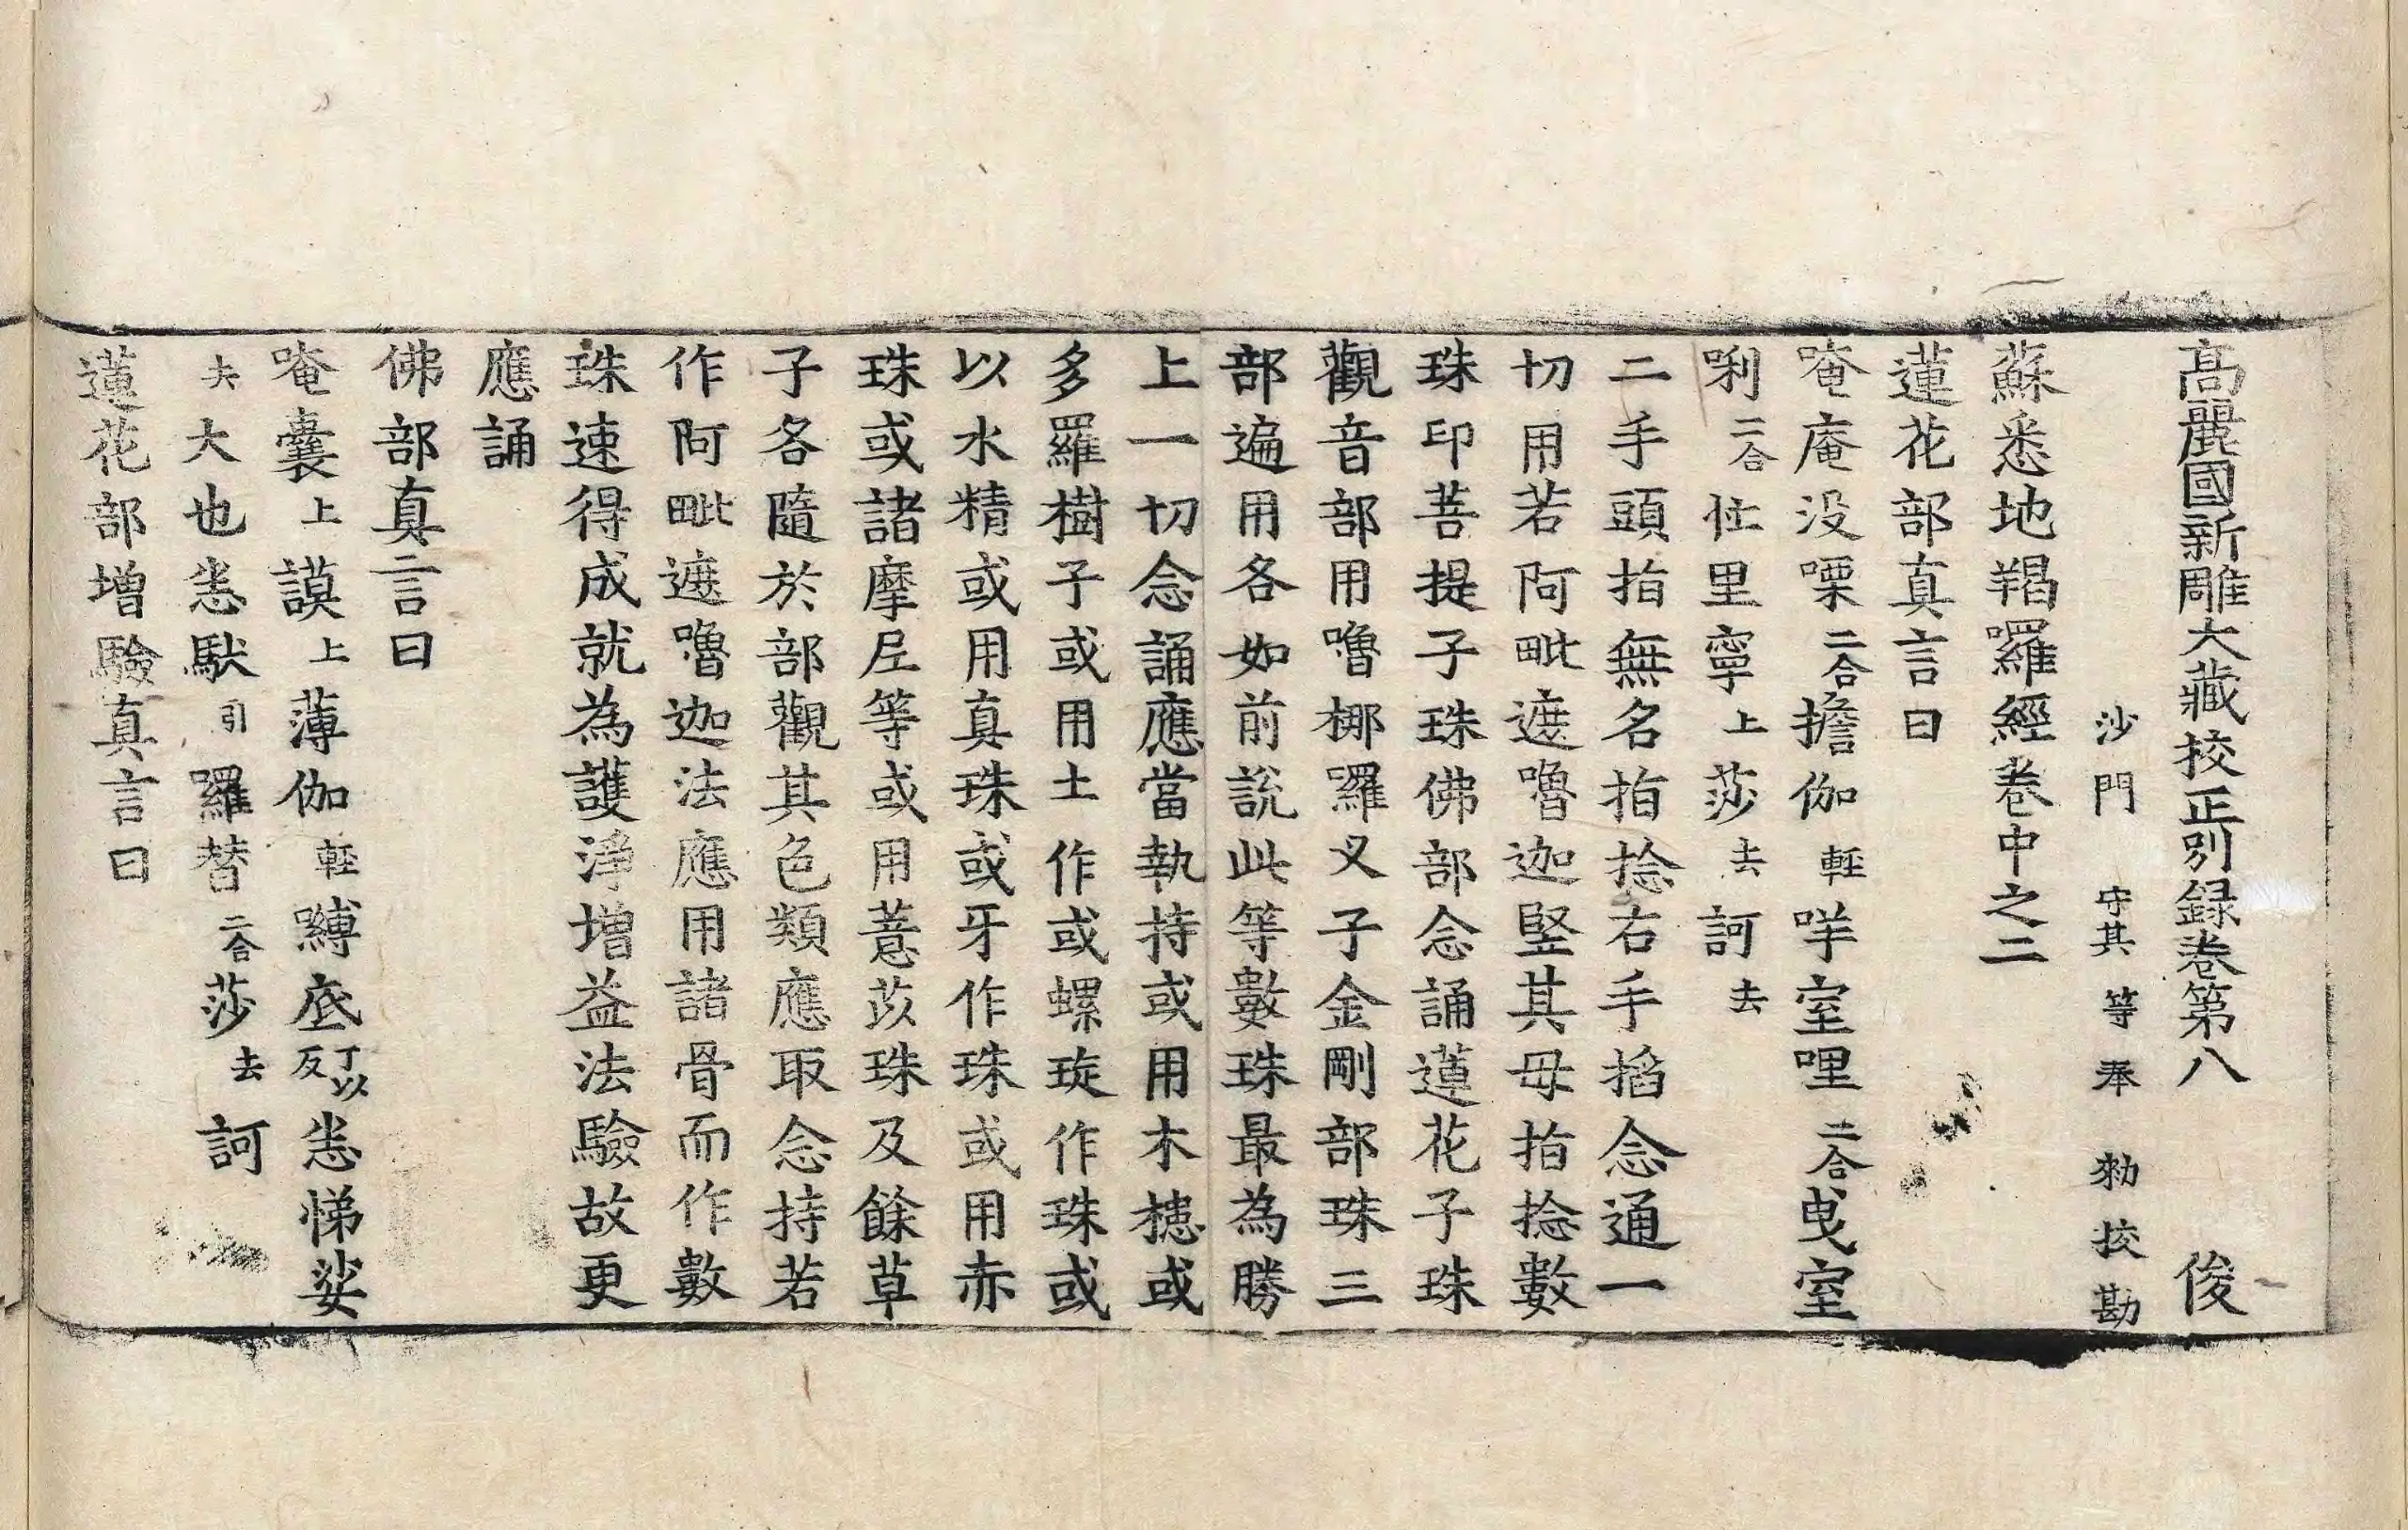 高麗國新雕大藏校正別録卷第八 俊
沙門 守其等奉 勑校勘
蘇悉地羯囉經卷中之二
蓮花部真言曰
唵庵没㗚二合擔伽輕哶室哩二合曳室
唎二合仕里寧上莎去訶去
二手頭指無名指捻右手搯念通一
切用若阿毗遮嚕迦竪其母指捻數
珠印菩提子珠佛部念誦蓮花子珠
觀音部用嚕梛囉叉子金剛部珠三
部遍用各如前說此等數珠最為勝
上一切念誦應當執持或用木槵或
多羅樹子或用土作或螺㻌作珠或
以水精或用真珠或牙作珠或用赤
珠或諸摩尼等或用薏苡珠及餘草
子各隨於部觀其色類應取念持若
作阿毗遮嚕迦法應用諸骨而作數
珠速得成就為護淨增益法驗故更
應誦
佛部真言曰
唵囊上謨上薄伽輕嚩底丁以反悉悌娑
去大也悉馱引羅替二合莎去訶
蓮花部增驗真言曰